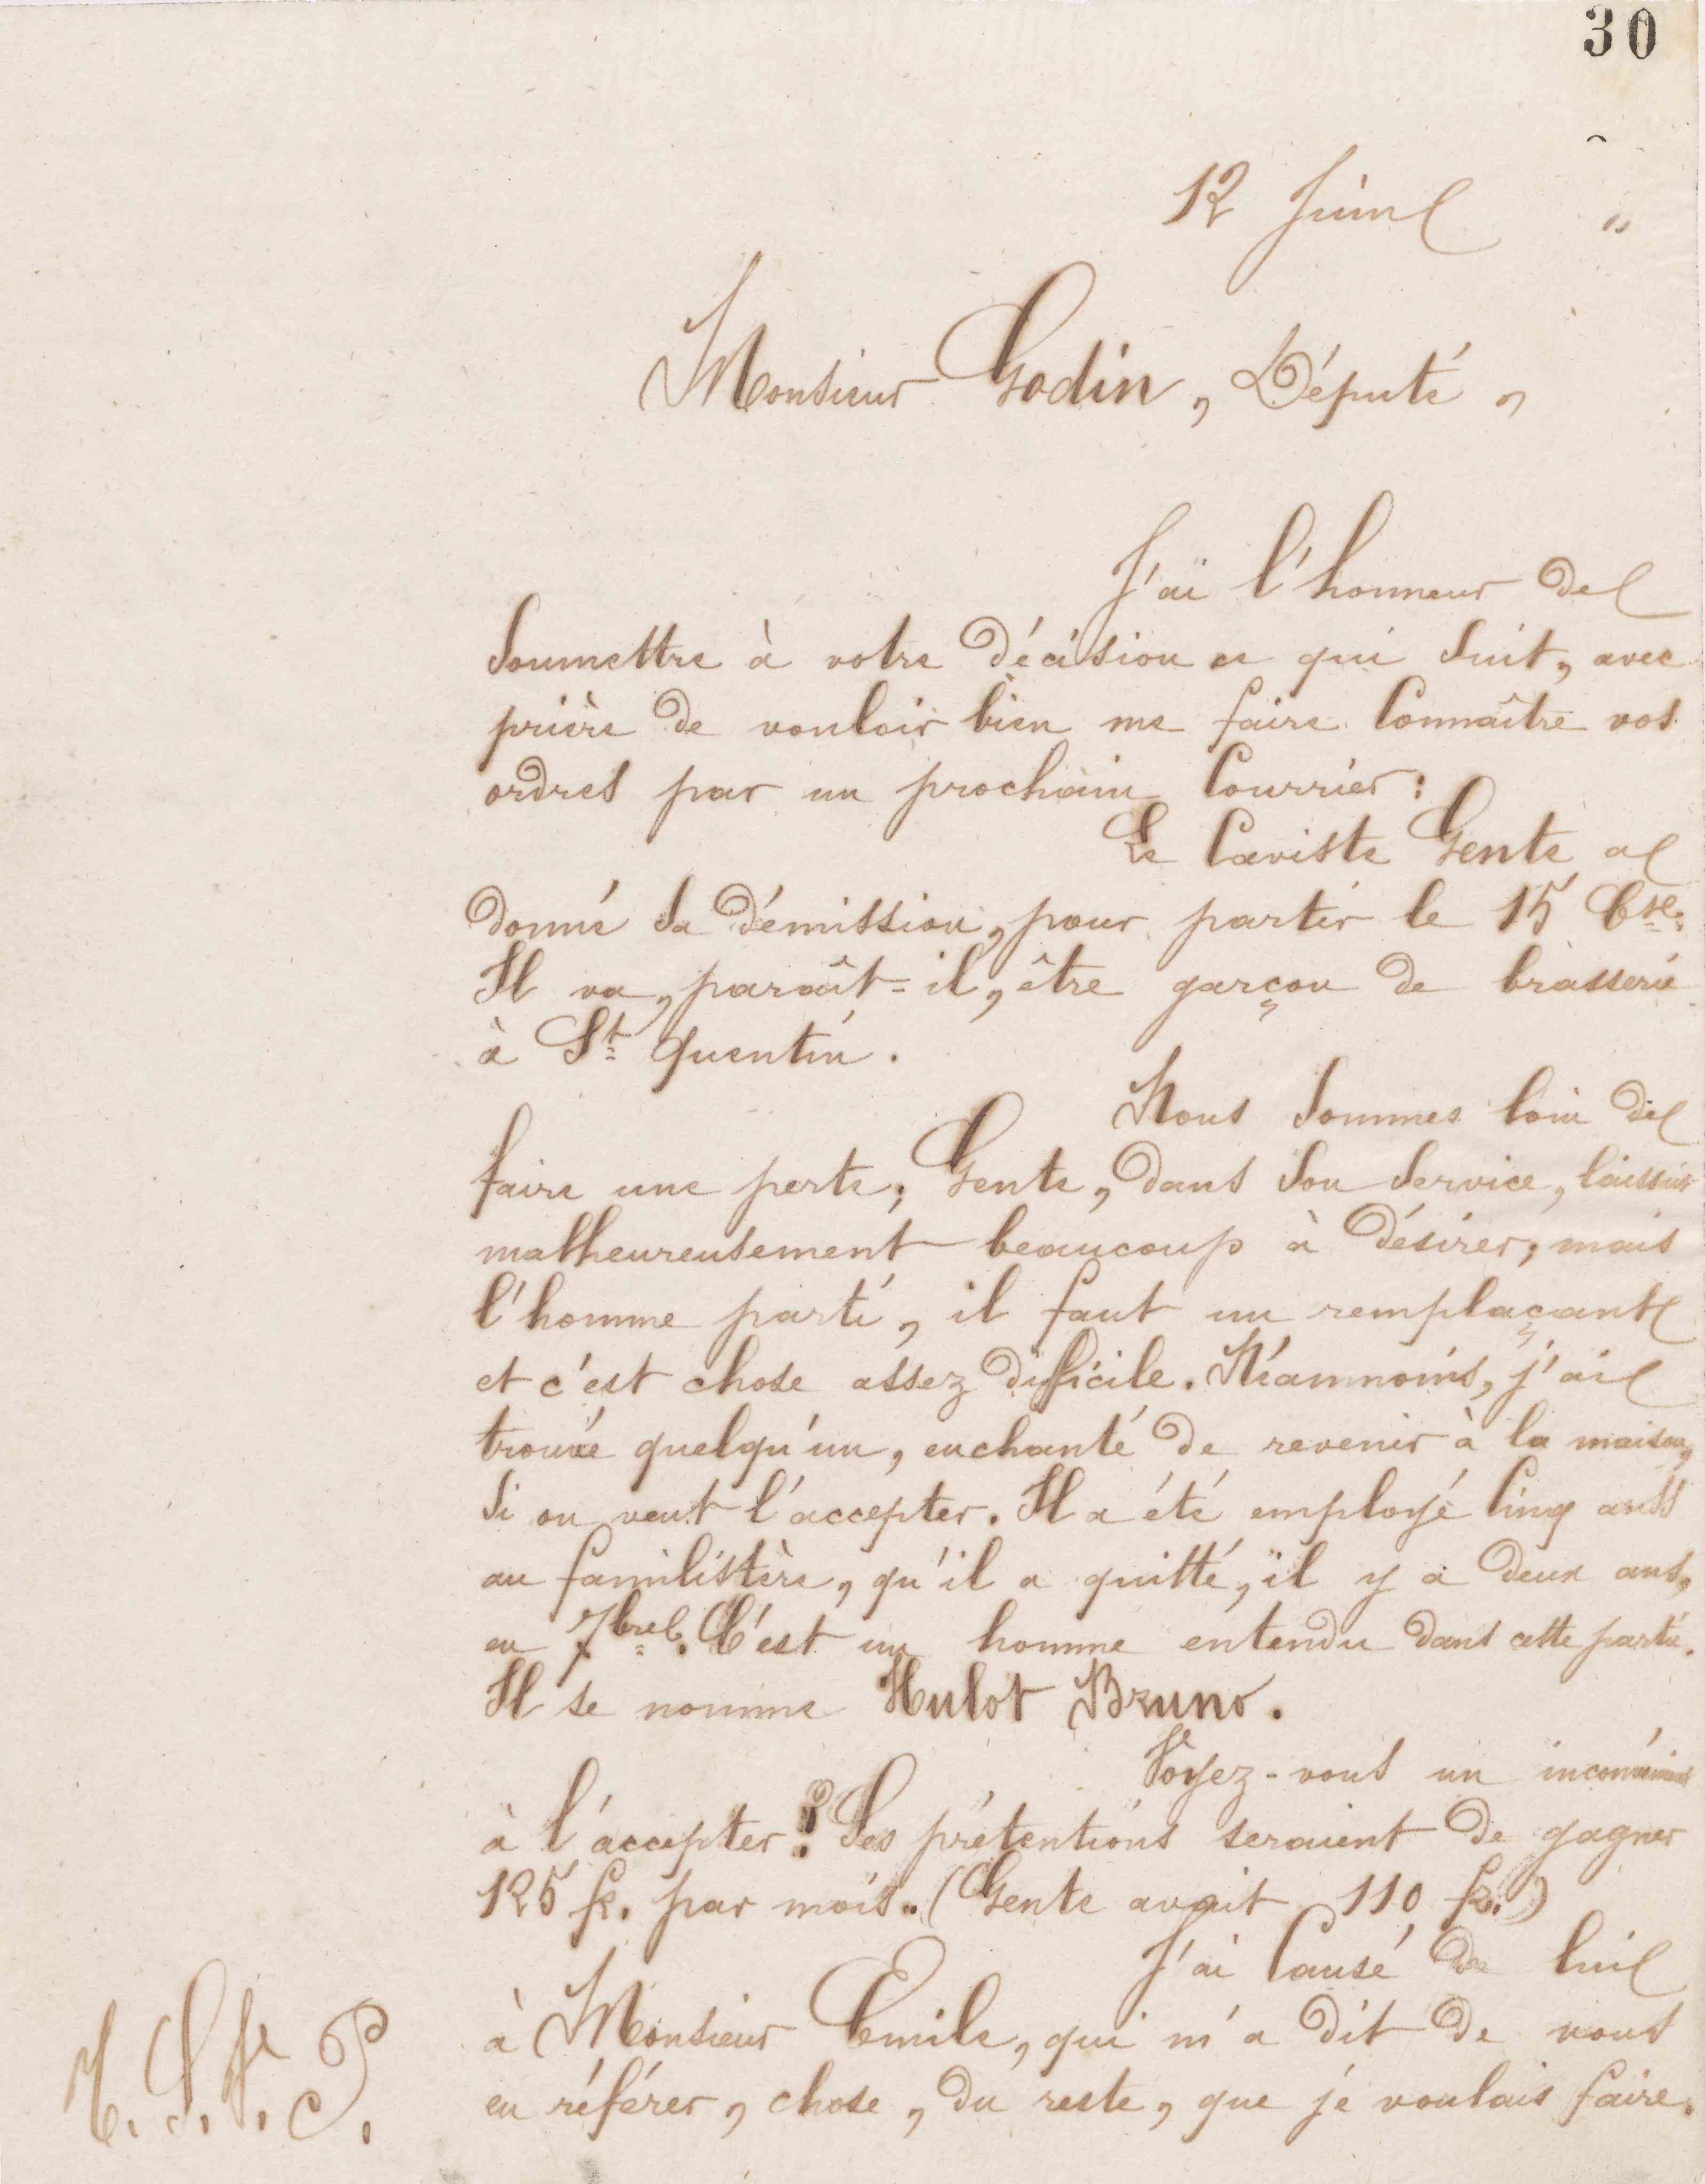 30
12 Juin "
Monsieur Godin, Député,
J'ai l'honneur de
soumettre à votre décision ce qui suit, avec
prière de vouloir bien me faire connaître vos
ordres par un prochain courrier :
Le Caviste Gente a
donné sa démission, pour partir le 15 Ct.
Il va, paraît-il, être garçon de brasserie
à St Quentin.
Nous sommes loin de
faire une perte ; Gente, dans son service, laissait
malheureusement beaucoup à désirer ; mais
l'homme parti, il faut un remplaçant
et c'est chose assez difficile. Néanmoins, j'ai
trouvé quelqu'un, enchanté de revenir à la maison,
si on veut l'accepter. Il a été employé cinq ans
au familistère, qu'il a quitté, il y a deux ans,
en 7bre. C'est un homme entendu dans cette partie.
Il se nomme Hulot Bruno.
Voyez-vous un inconvénient
à l'accepter ? Ses prétentions seraient de gagner
125 fr. par mois. (Gente avait 110 fr.)
J'ai causé de lui
à Monsieur Emile, qui m'a dit de vous
en référer, chose, du reste, que je voulais faire.